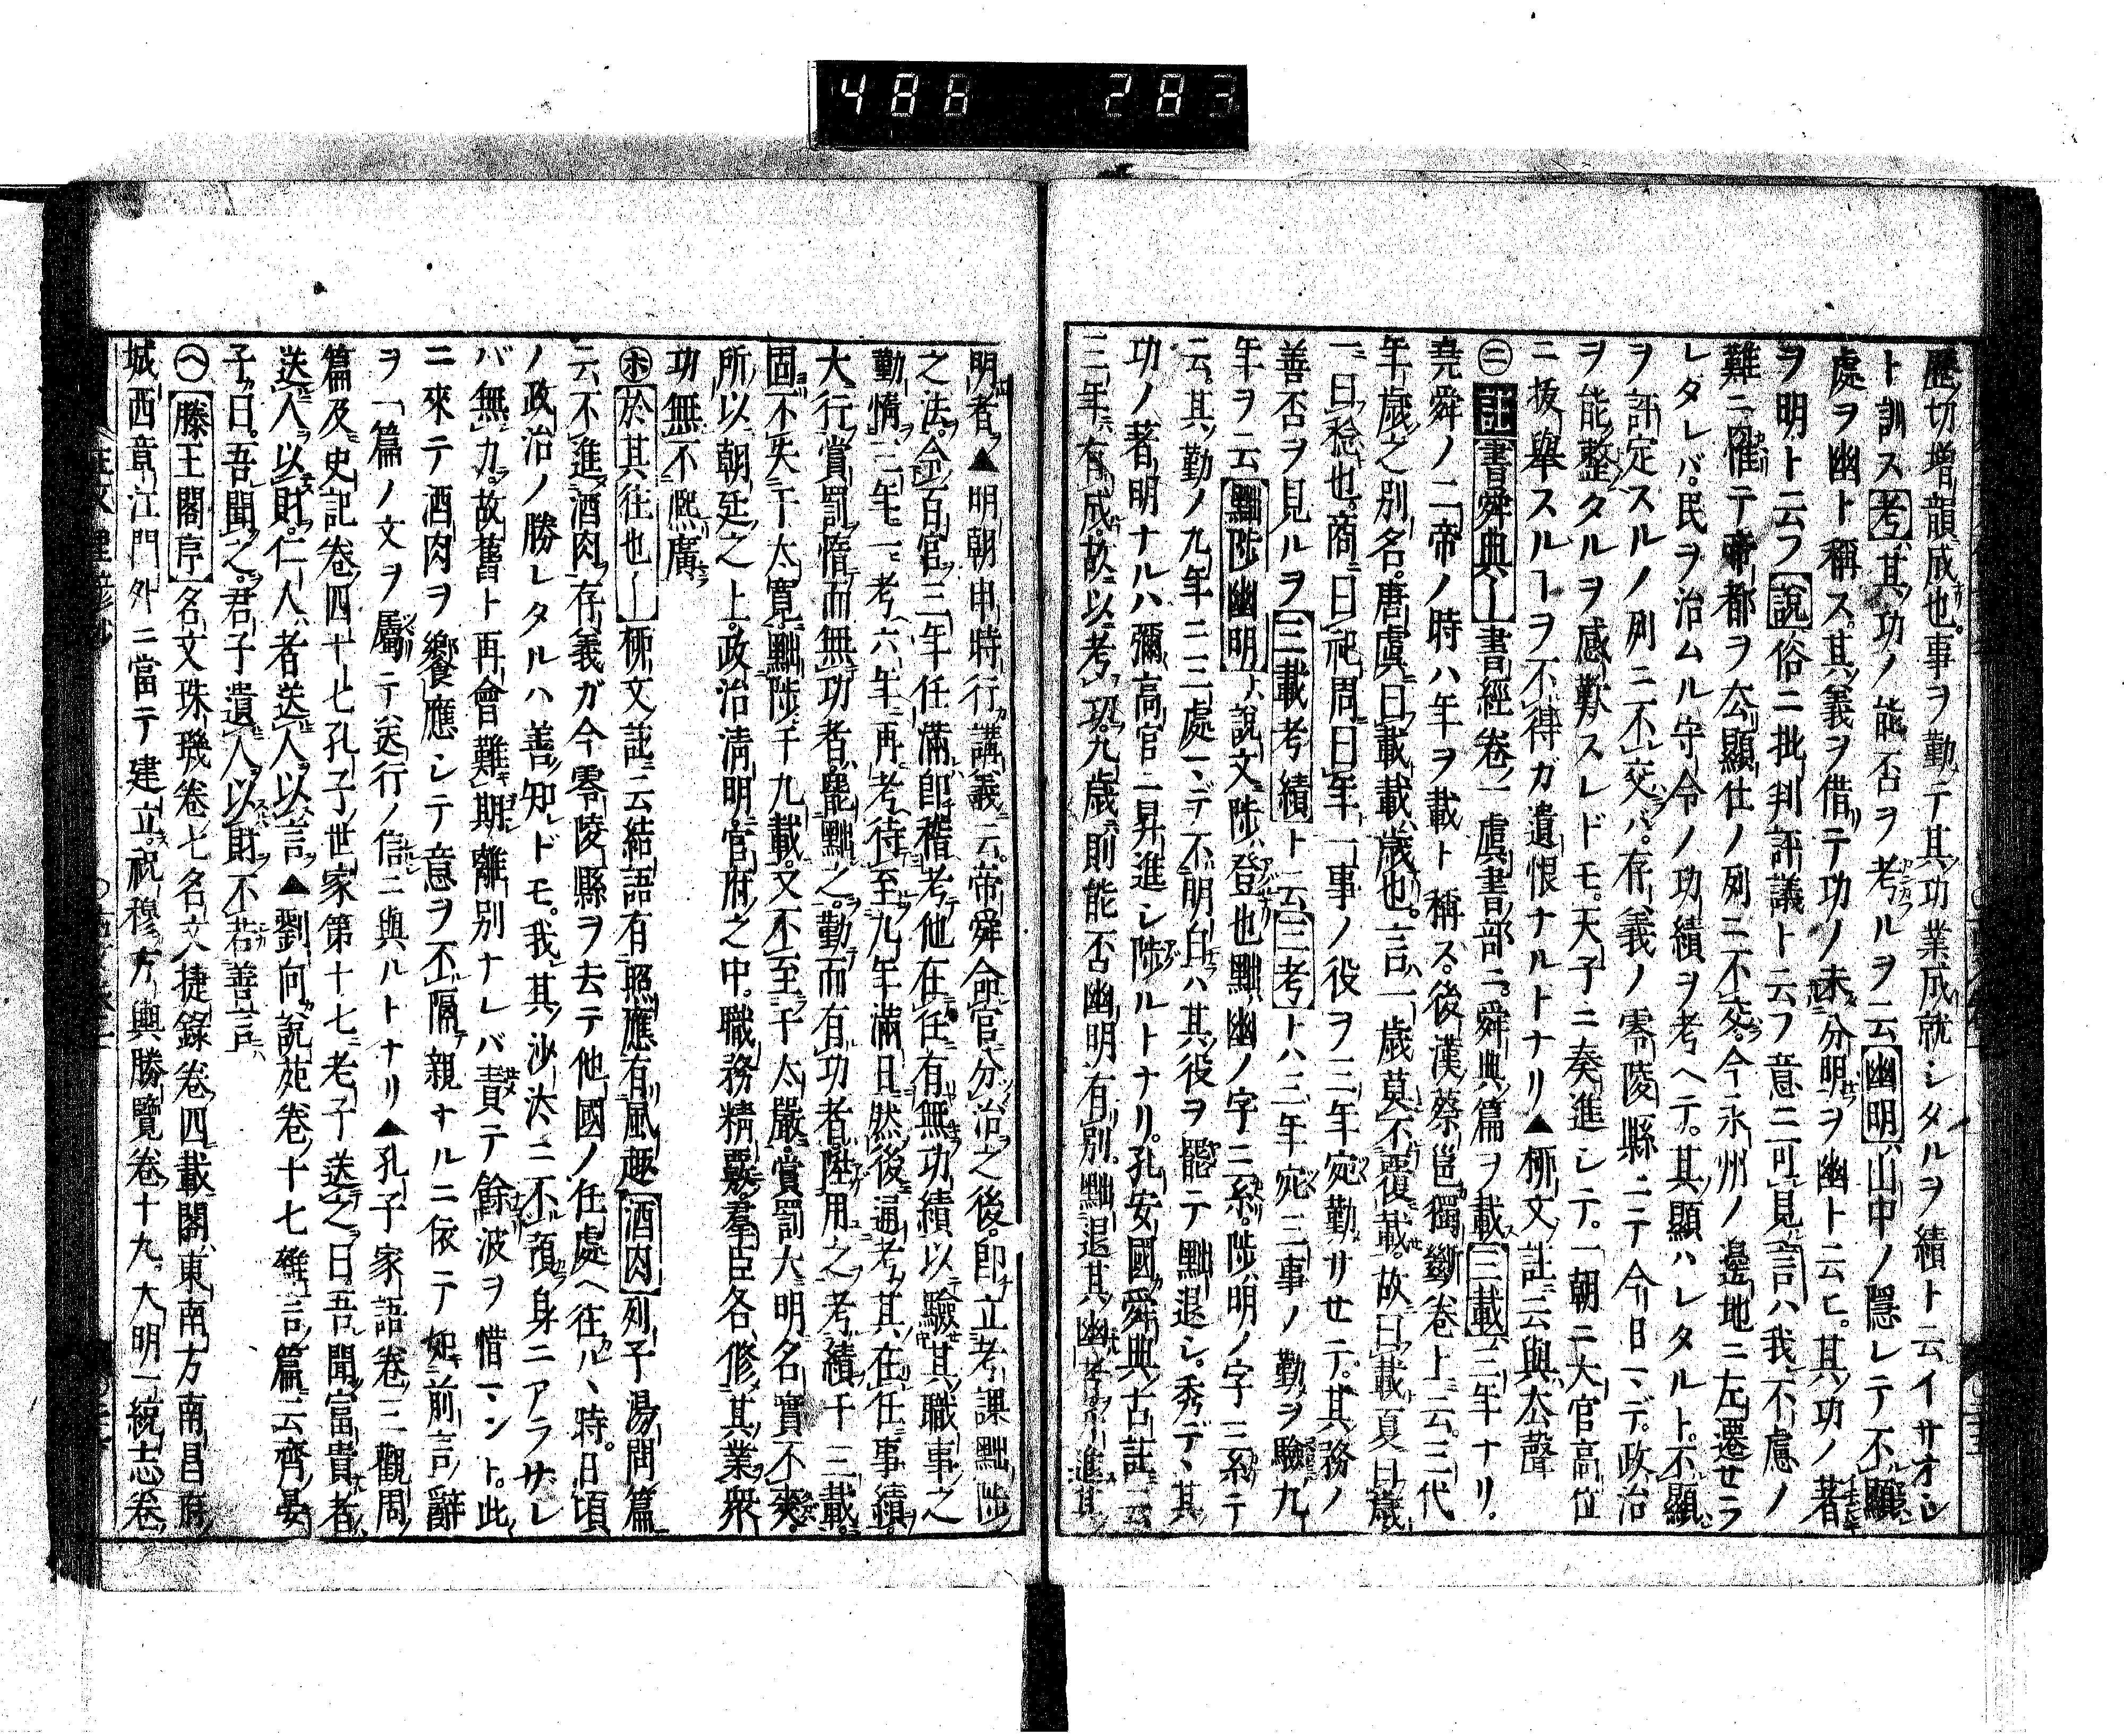 486 283
歷切増韻成也。事ヲ勤テ其功業成就シタルヲ績ト云イサオシ
ト訓ス考其功ノ能否ヲ考ルヲ云幽明山中ノ隱レテ不顯
處ヲ幽ト稱ス。其義ヲ借テ功ノ未分明ヲ幽ト云ヒ。其功ノ著
ヲ明ト云フ説俗ニ批判評議ト云フ意ニ可見言ハ我不慮ノ
難ニ罹テ帝都ヲ去顯仕ノ列ニ不交。今永州ノ邊地ニ左遷セラ
レタレバ。民ヲ治ムル守令ノ功績ヲ考ヘテ。其顯ハレタルト。不顯
ヲ評定スルノ列ニ不交バ。存義ノ零陵縣ニテ今日マデ。政治
ヲ能整タルヲ感歎スレドモ。天子ニ奏進シテ。一朝ニ大官高位
ニ抜擧スルヿヲ不得ガ遺恨ナルトナリ▲栁文註云與去聲
㊁註書舜典ー書經卷一虞書部ニ。舜典篇ヲ載三載三年ナリ。
堯舜ノ二帝ノ時ハ年ヲ載ト稱ス。後漢蔡邕獨斷卷上云。三代
年歲之別名。唐虞曰載載歲也。言一歲莫不覆載。故曰載夏曰歲
一曰稔也。商曰祀周曰年一事ノ役ヲ三年宛勤サセテ。其務ノ
善否ヲ見ルヲ三載考績ト云三考トハ三年宛三事ノ勤ヲ驗九
年ヲ云黜陟幽明說文陟登也黜幽ノ字ニ系。陟明ノ字ニ系テ
云。其勤ノ九年ニ三處マデ不明白ハ其役ヲ罷テ黜退シ。秀デヽ其
功ノ著明ナルハ彌高官ニ昇進シ陟ルトナリ。孔安國舜典古註云
三年有成。故以考功。九歲則能否幽明有別。黜退其幽者。升進其
明者▲明朝申時行講義云。帝舜命官分治之後。即立考課黜陟
之法。令百官三年任滿即稽考他在任有無功績以驗其職事之
勤惰三年一考六年再考待至九年滿日然後通考其在任事績。
大行賞罰惰而無功者罷黜之。勤而有功者陞用之考績于三載
固不失于太寬。黜陟于九載。又不至于太嚴。賞罰大明名實不爽。
所以朝廷之上。政治淸明。官府之中。職務精覈。羣臣各修其業衆
功無不熈廣
㋭於其往也ー栁文註云結語有照應有風趣酒肉列子湯問篇
云不進酒肉存義ガ今零陵縣ヲ去テ他國ノ任處ヘ往ルヽ時。日頃
ノ政治ノ勝レタルハ善知ドモ。我其沙汰ニ不預身ニアラサレ
バ無力。故舊ト再會難期離別ナレバ責テ餘波ヲ惜マント。此
ニ來テ酒肉ヲ饗應シテ意ヲ不隔親ナルニ依テ如前言辭
ヲ一篇ノ文ヲ屬テ送行ノ信ニ與ルトナリ▲孔子家語卷三觀周
篇及史記卷四十七孔子世家第十七老子送之曰吾聞富貴者
送人以財。仁人者送人以言▲劉向說苑卷十七雜言篇云齊晏
子曰。吾聞之。君子遺人以財不若善言
㋬滕王閣序名文珠璣卷七名文捷錄卷四載閣東南方南昌府
城西章江門外ニ當テ建立。祝穆方輿勝覽卷十九。大明一統志卷